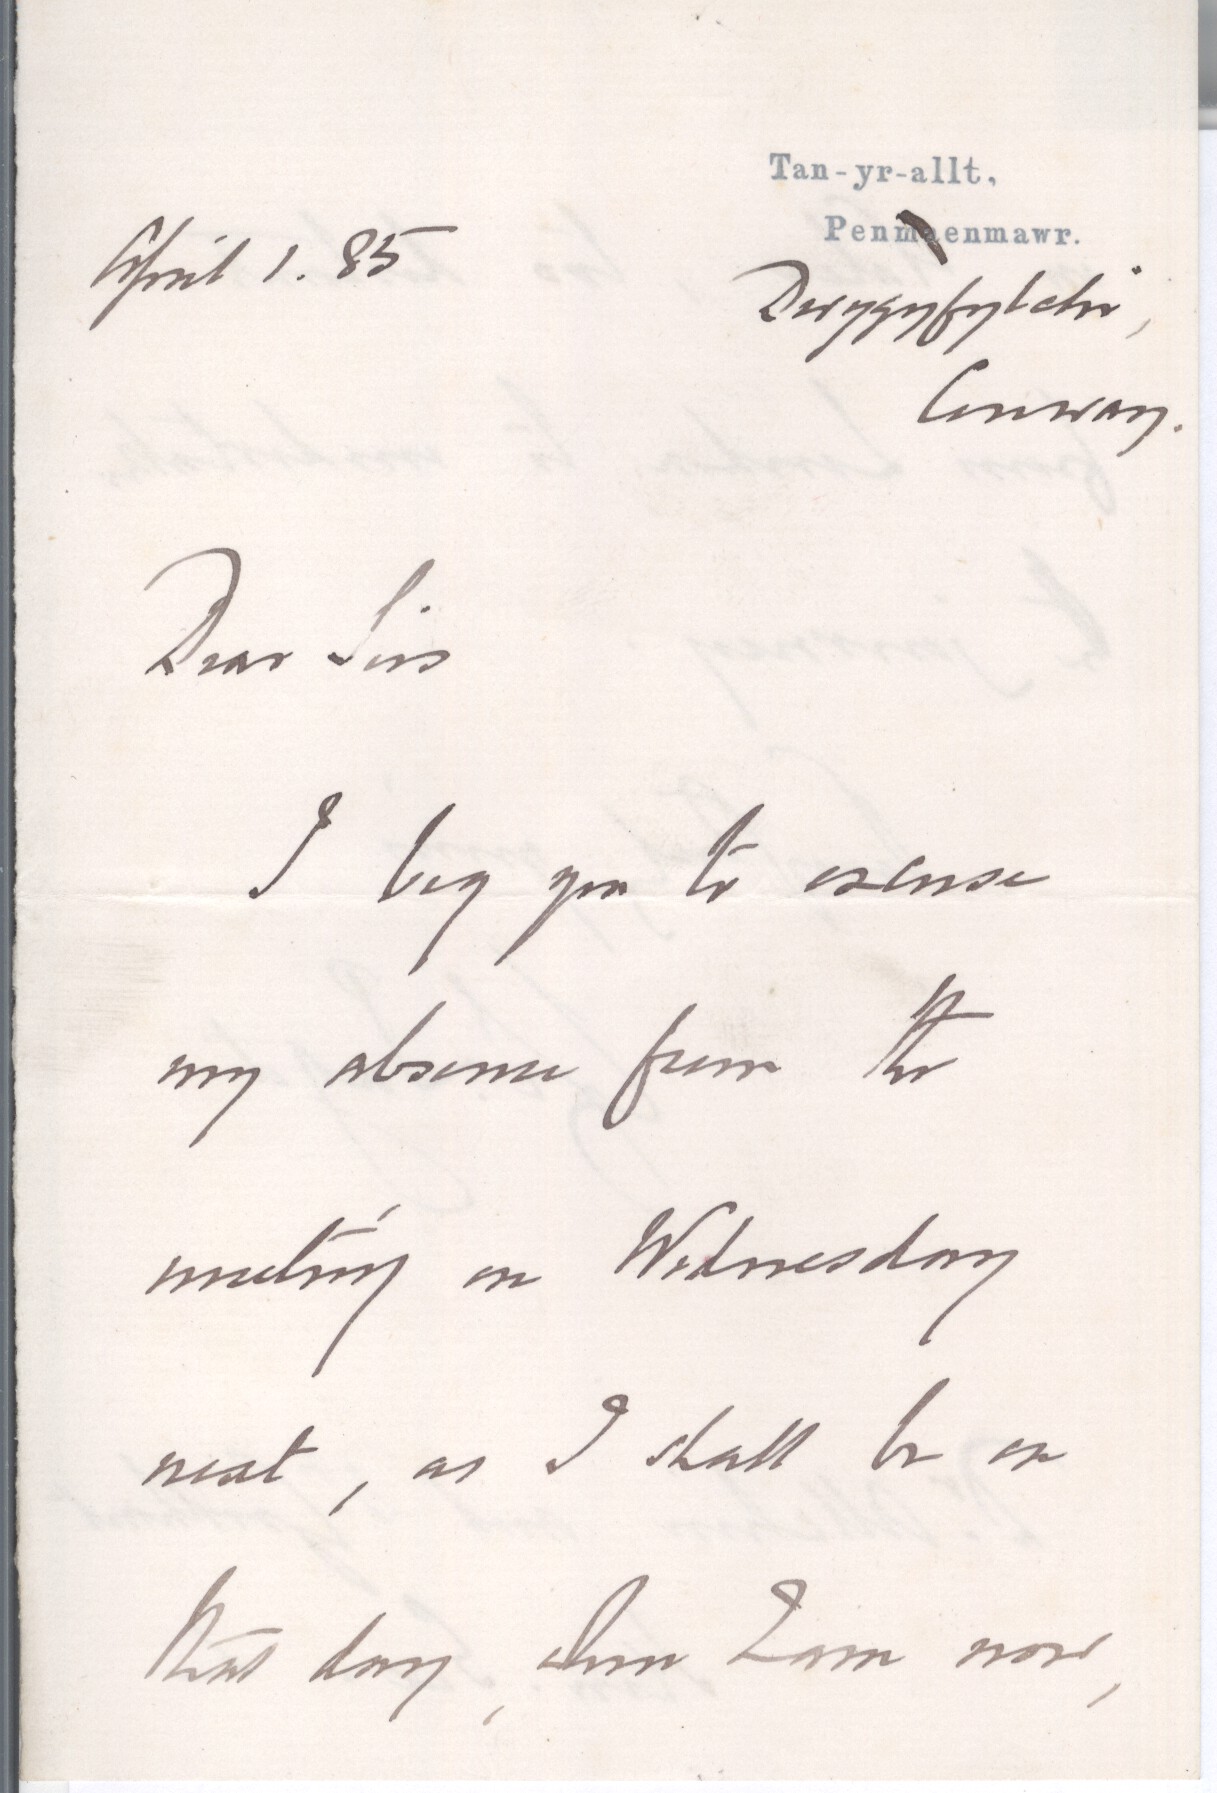 Tan-yr-allt,
Penmaenmawr.
April 1. 85
Dwygyfylchi,
Conway.
Dear Sirs
I beg you to excuse
my absence from the
meeting on Wednesday
next, as I shall be on
that day, where I am now,